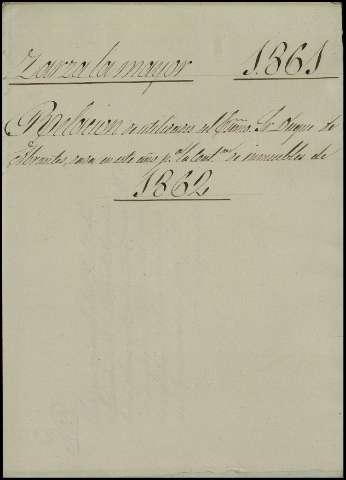 Zarza la mayor 1861
Relacion de utilidades del Exmo. Sr. Duque de
Abrantes, en este año pª la Conton. de inmuebles de
1862